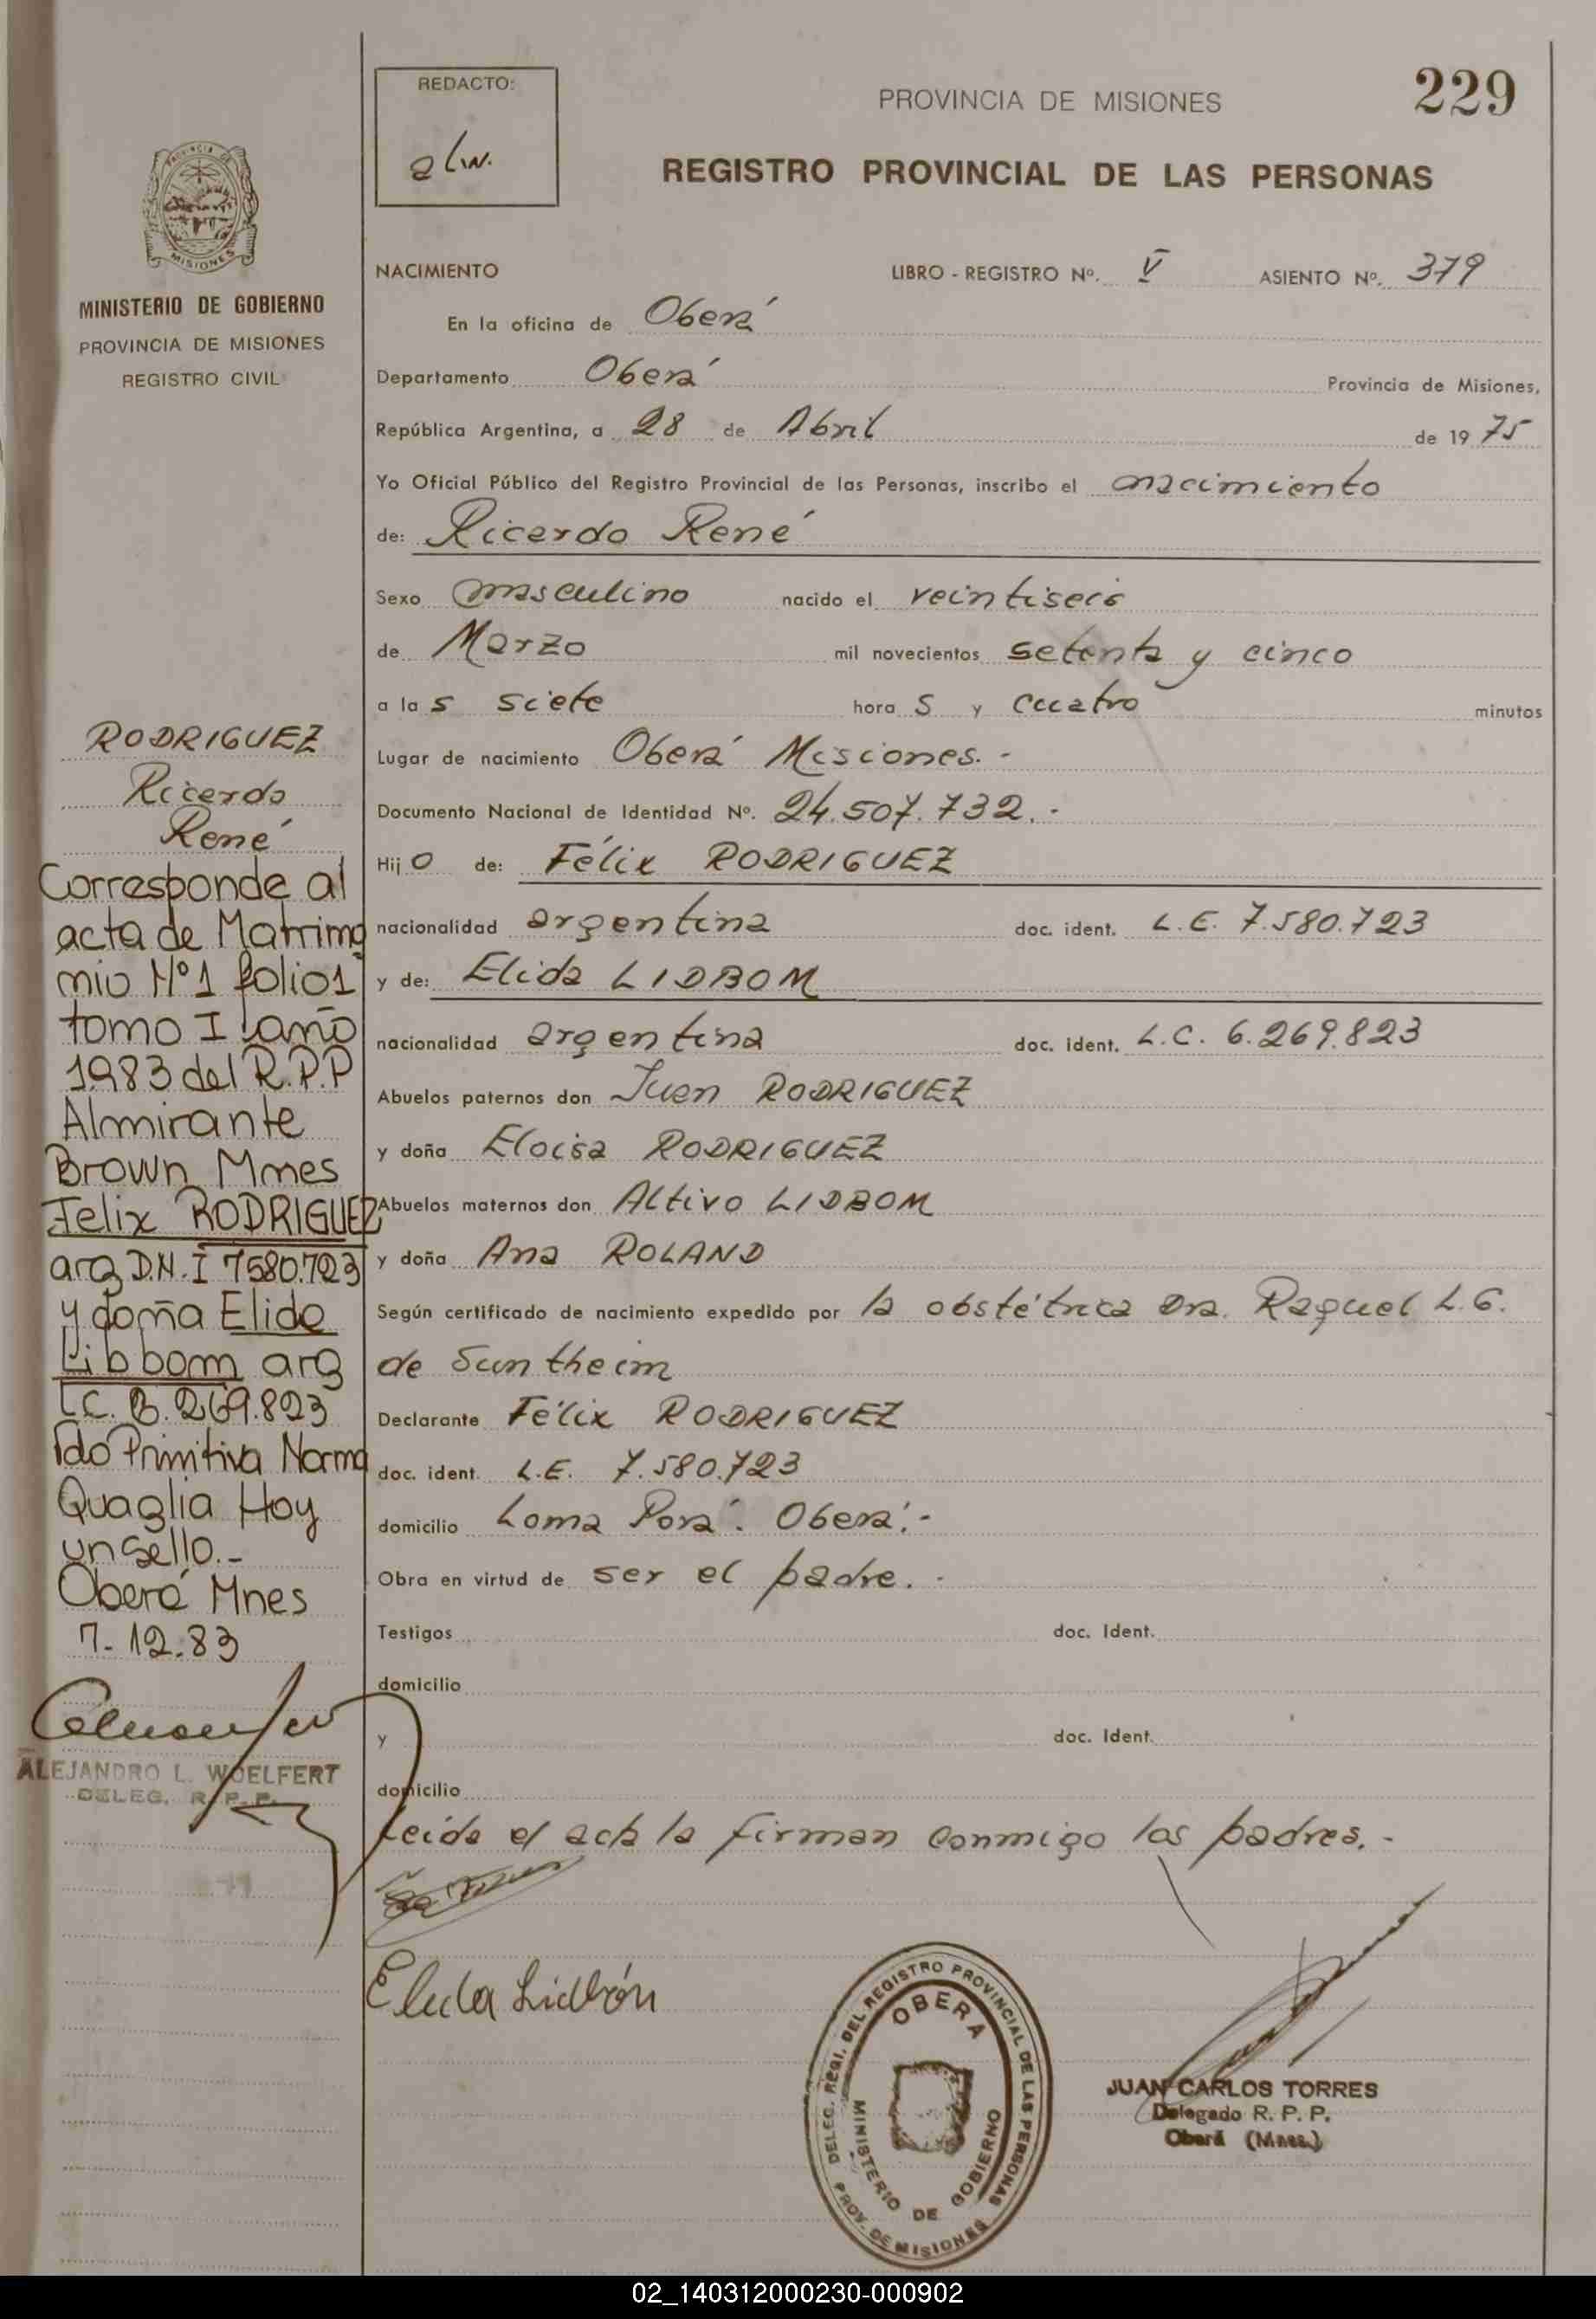 229
REDACTO:
PROVINCIA DE MISIONES
REGISTRO PROVINCIAL DE LAS PERSONAS
PROVINCIA DE
MISIONES
MINISTERIO DE GOBIERNO
PROVINCIA DE MISIONES
REGISTRO CIVIL
NACIMIENTO LIBRO - REGISTRO Nº. V ASIENTO Nº. 379
En la oficina de Oberá
Departamento Oberá Provincia de Misiones,
República Argentina, a 28 de Abril de 1975
Yo Oficial Público del Registro Provincial de las Personas, inscribo el nacimiento
de: Ricardo René
Sexo masculino nacido el veintiseis
de Marzo mil novecientos setenta y cinco
a las siete horas y cuatro minutos
Lugar de nacimiento Oberá Misiones.-
Documento Nacional de Identidad Nº. 24.507.732.-
Hijo de: Félix RODRIGUEZ
nacionalidad argentina doc. ident. L.E. 7.580.723
y de: Elida LIDBOM
nacionalidad argentina doc. ident. L.C. 6.269.823
Abuelos paternos don Juan RODRIGUEZ
y doña Eloisa RODRIGUEZ
Abuelos maternos don Altivo LIDBOM
y doña Ana ROLAND
Según certificado de nacimiento expedido por la obstétrica Dra. Raquel L.G.
de Suntheim
Declarante Félix RODRIGUEZ
doc. ident. L.E. 7.580.723
domicilio Loma Porá. Oberá.-
Obra en virtud de ser el padre.-
Testigos doc. Ident.
domicilio
y doc. Ident.
domicilio
Leida el acta la firman conmigo los padres.-
Elida Lidbón
RODRIGUEZ
Ricardo
René
Corresponde al
acta de Matrimo
nio Nº1 folio1
tomo I año
1983 del R.P.P
Almirante
Brown Mnes
Felix RODRIGUEZ
arg D.N.I 7580.723
y doña Elida
Libbom arg
LC. 6.269.823
Fdo Primitiva Norma
Quaglia Hoy
un sello.-
Oberá Mnes
7-12.83
ALEJANDRO L. WOELFERT
DELEG. R. P. P.
DELEG. REGI. DEL REGISTRO PROVINCIAL DE LAS PERSONAS
OBERA
MINISTERIO DE GOBIERNO
PROV. DE MISIONES
JUAN CARLOS TORRES
Delegado R. P. P.
Oberá (Mnes.)
02_140312000230-000902